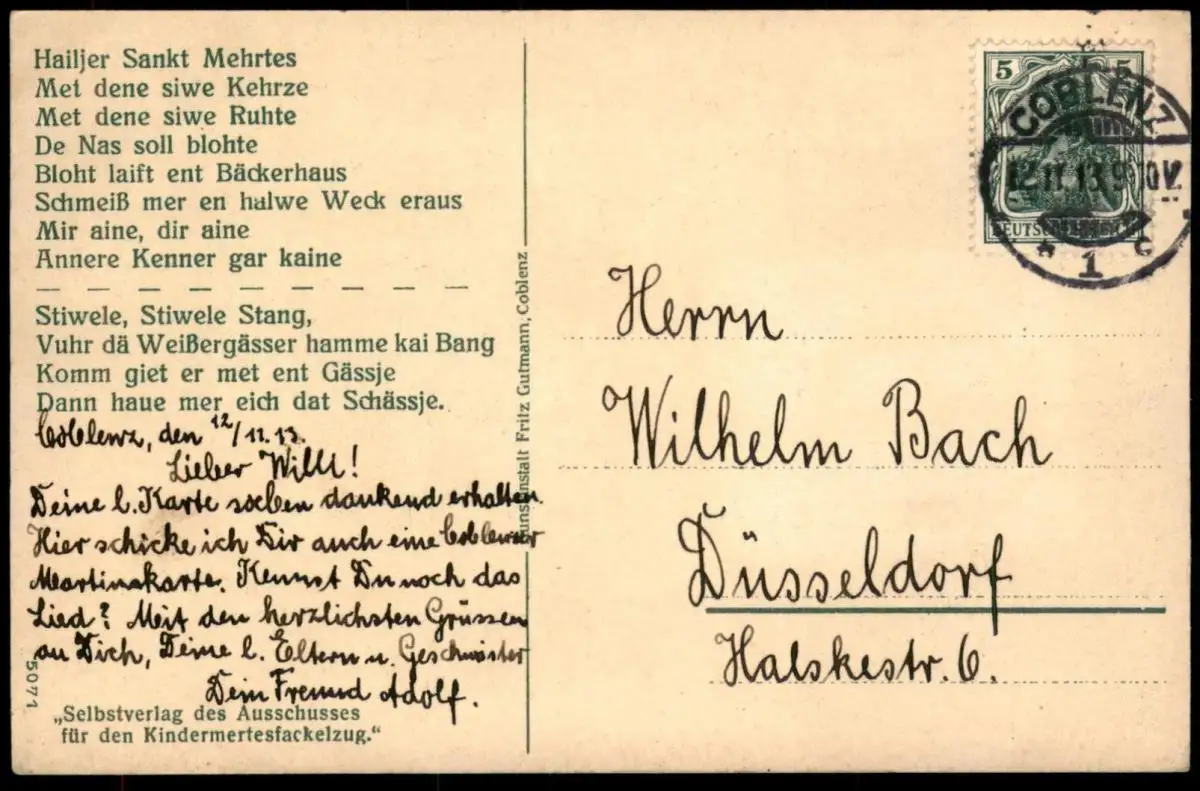 Hailjer Sankt Mehrtes
Met dene siwe Kehrze
Met dene siwe Ruhte
De Nas soll blohte
Bloht laift ent Bäckerhaus
Schmeiß mer en halwe Weck eraus
Mir aine, dir aine
Annere Kenner gar kaine
Stiwele, Stiwele Stang,
Vuhr dä Weißergässer hamme kai Bang
Komm giet er met ent Gässje
Dann haue mer eich dat Schässje.
Coblenz, den 12/11.13.
Lieber Willi!
Deine l. Karte soeben dankend erhalten.
Hier schicke ich Dir auch eine Coblenzer
Martinskarte. Kennst Du noch das
Lied? Mit den herzlichsten Grüssen
an Dich, Deine l. Eltern u. Geschwister
Dein Freund Adolf.
5071
„Selbstverlag des Ausschusses
für den Kindermertesfackelzug."
Kunstanstalt Fritz Gutmann, Coblenz
5 5
DEUTSCHES REICH
COBLENZ
12.11.13.9-10V.
* 1 c
Herrn
Wilhelm Bach
Düsseldorf
Halskestr. 6.